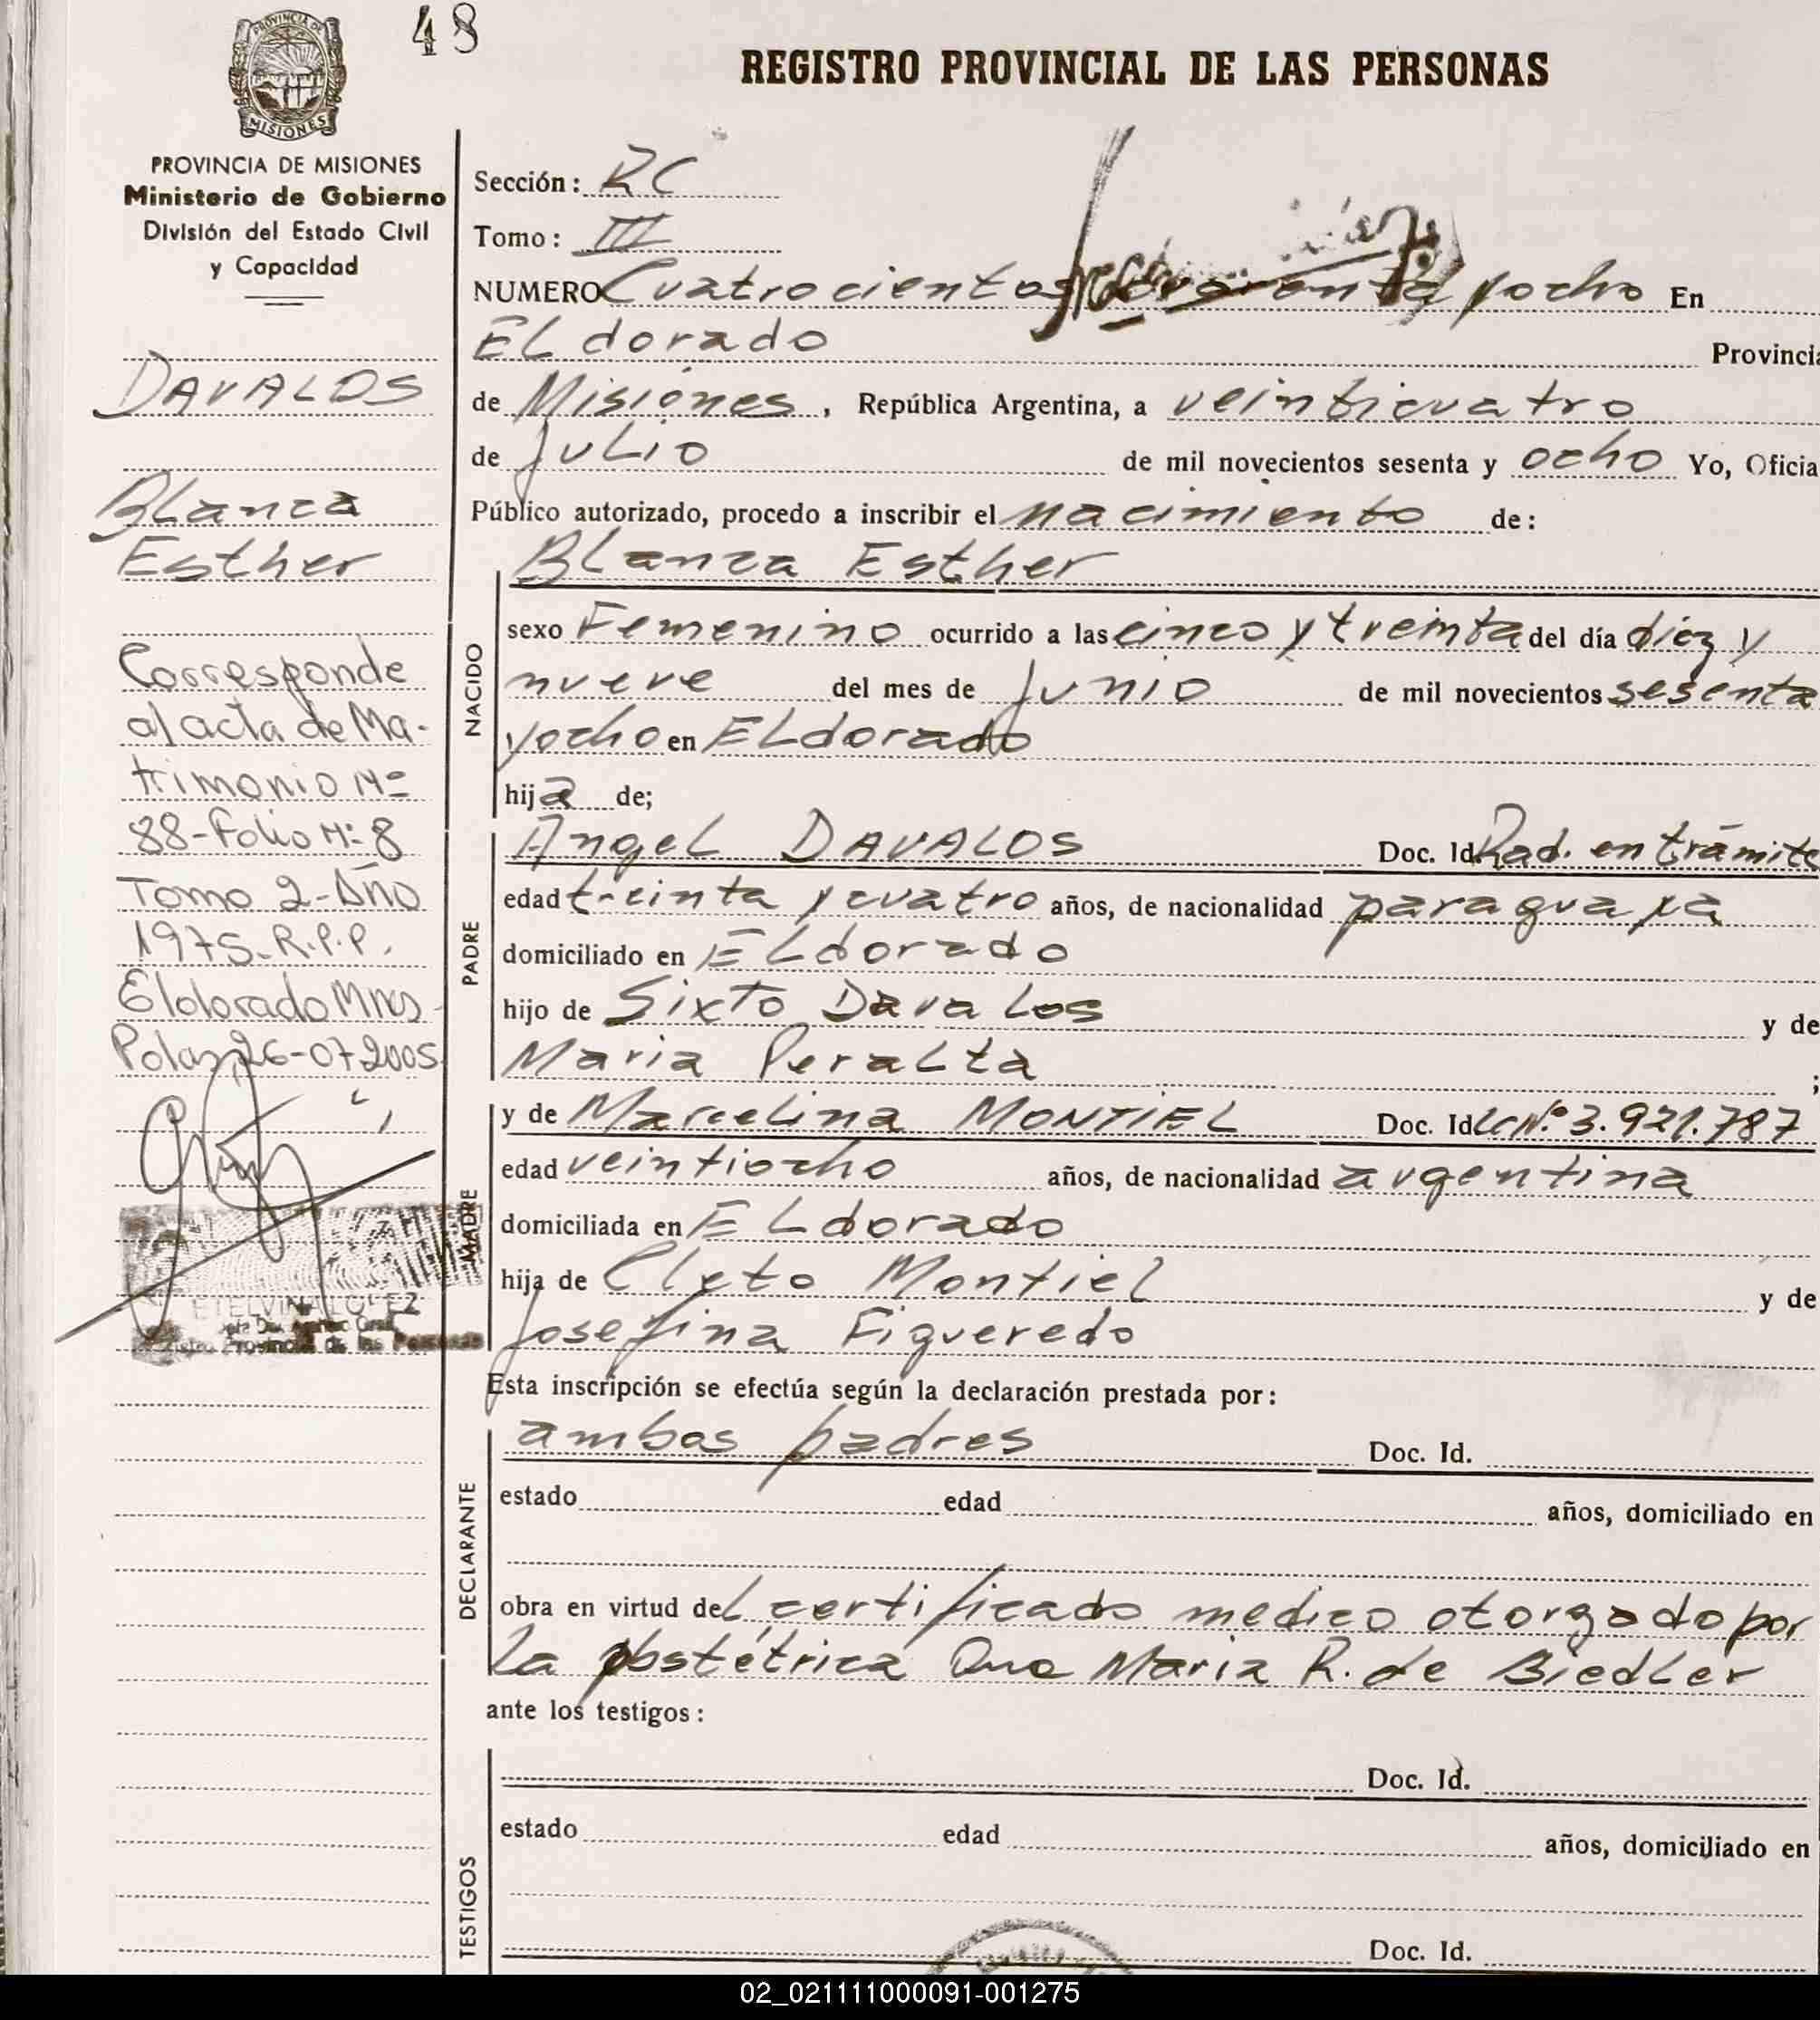 48
REGISTRO PROVINCIAL DE LAS PERSONAS
PROVINCIA DE
MISIONES
PROVINCIA DE MISIONES
Ministerio de Gobierno
División del Estado Civil
y Capacidad
DAVALOS
Blanca
Esther
Corresponde
al acta de Ma-
trimonio Nº
88-Folio Nº 8
Tomo 2-Año
1975-R.P.P.
Eldorado Mnes
26-07-2005
ETELVINA LOPEZ
Provincial de las Personas
Sección: RC
Tomo: III
NUMERO Cuatrocientos cuarenta y ocho En
ELdorado Provincia
de Misiones, República Argentina, a veinticuatro
de Julio de mil novecientos sesenta y ocho Yo, Oficia
Público autorizado, procedo a inscribir el nacimiento de:
NACIDO
Blanca Esther
sexo Femenino ocurrido a las cinco y treinta del día diez y
nueve del mes de Junio de mil novecientos sesenta
y ocho en ELdorado
hija de;
PADRE
Angel DAVALOS Doc. Id. Rad. en trámite
edad treinta y cuatro años, de nacionalidad paraguaya
domiciliado en ELdorado
hijo de Sixto Davalos y de
Maria Peralta ;
MADRE
y de Marcelina MONTIEL Doc. Id LC Nº 3.921.787
edad veintiocho años, de nacionalidad argentina
domiciliada en ELdorado
hija de Cleto Montiel y de
Josefina Figueredo
Esta inscripción se efectúa según la declaración prestada por:
DECLARANTE
ambos padres Doc. Id.
estado edad años, domiciliado en
obra en virtud del certificado medico otorgado por
la obstétrica Dna Maria R. de Biedler
ante los testigos:
TESTIGOS
Doc. Id.
estado edad años, domiciliado en
Doc. Id.
02_021111000091-001275